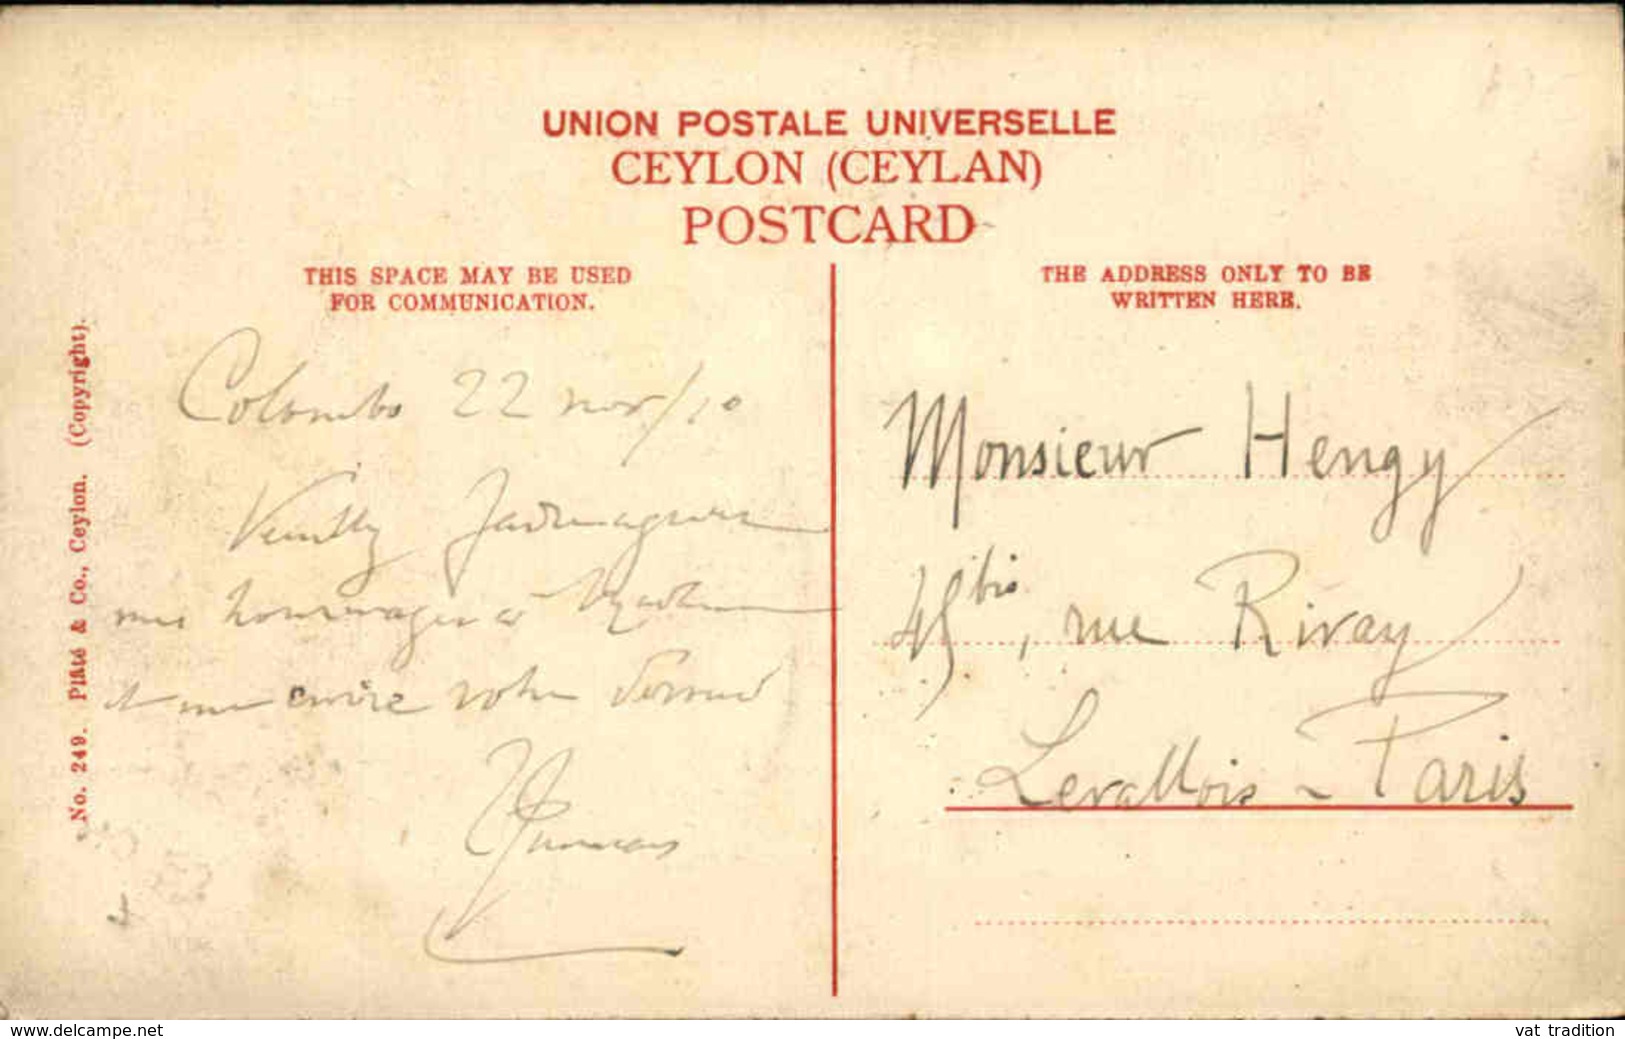 UNION POSTALE UNIVERSELLE
CEYLON (CEYLAN)
POSTCARD
THIS SPACE MAY BE USED
FOR COMMUNICATION.
THE ADDRESS ONLY TO BE
WRITTEN HERE.
No. 249. Plâté & Co., Ceylon. (Copyright).
Colombo 22 nov/10
mes hommages à
et me croire votre
Monsieur Hengy
45 bis, rue Rivay
Levallois - Paris
www.delcampe.net
vat tradition